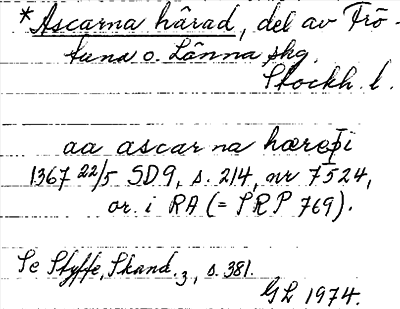 *Ascarna härad, del av Frö-
tuna o. Länna skg.
Stockh. l.
aa ascar na hæreþi
1367 22/5 SD9, s. 214, nr 7524,
or. i RA (= SRP 769).
Se Styffe, Skand.3, s. 381.
GL 1974.